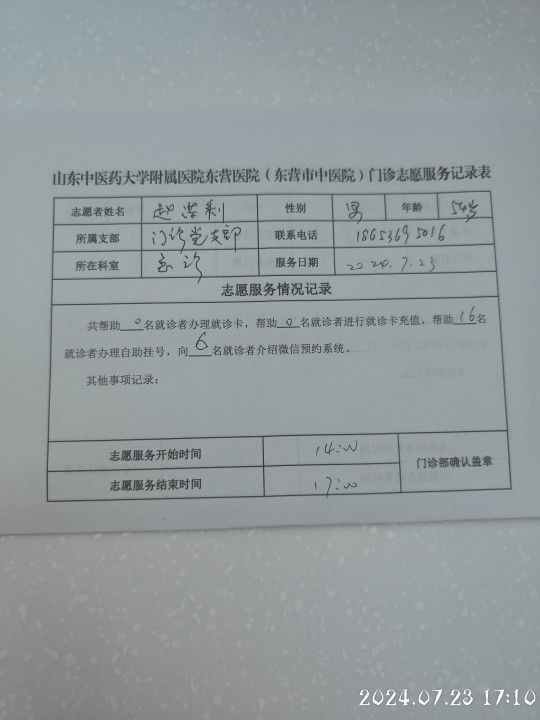 山东中医药大学附属医院东营医院（东营市中医院）门诊志愿服务记录表
志愿者姓名 赵荣利 性别 男 年龄 54岁
所属支部 门诊党支部 联系电话 18653695016
所在科室 急诊 服务日期 2024.7.23
志愿服务情况记录
共帮助0名就诊者办理就诊卡，帮助0名就诊者进行就诊卡充值，帮助16名
就诊者办理自助挂号，向6名就诊者介绍微信预约系统。
其他事项记录：
志愿服务开始时间 14:00 门诊部确认盖章
志愿服务结束时间 17:00
2024.07.23 17:10